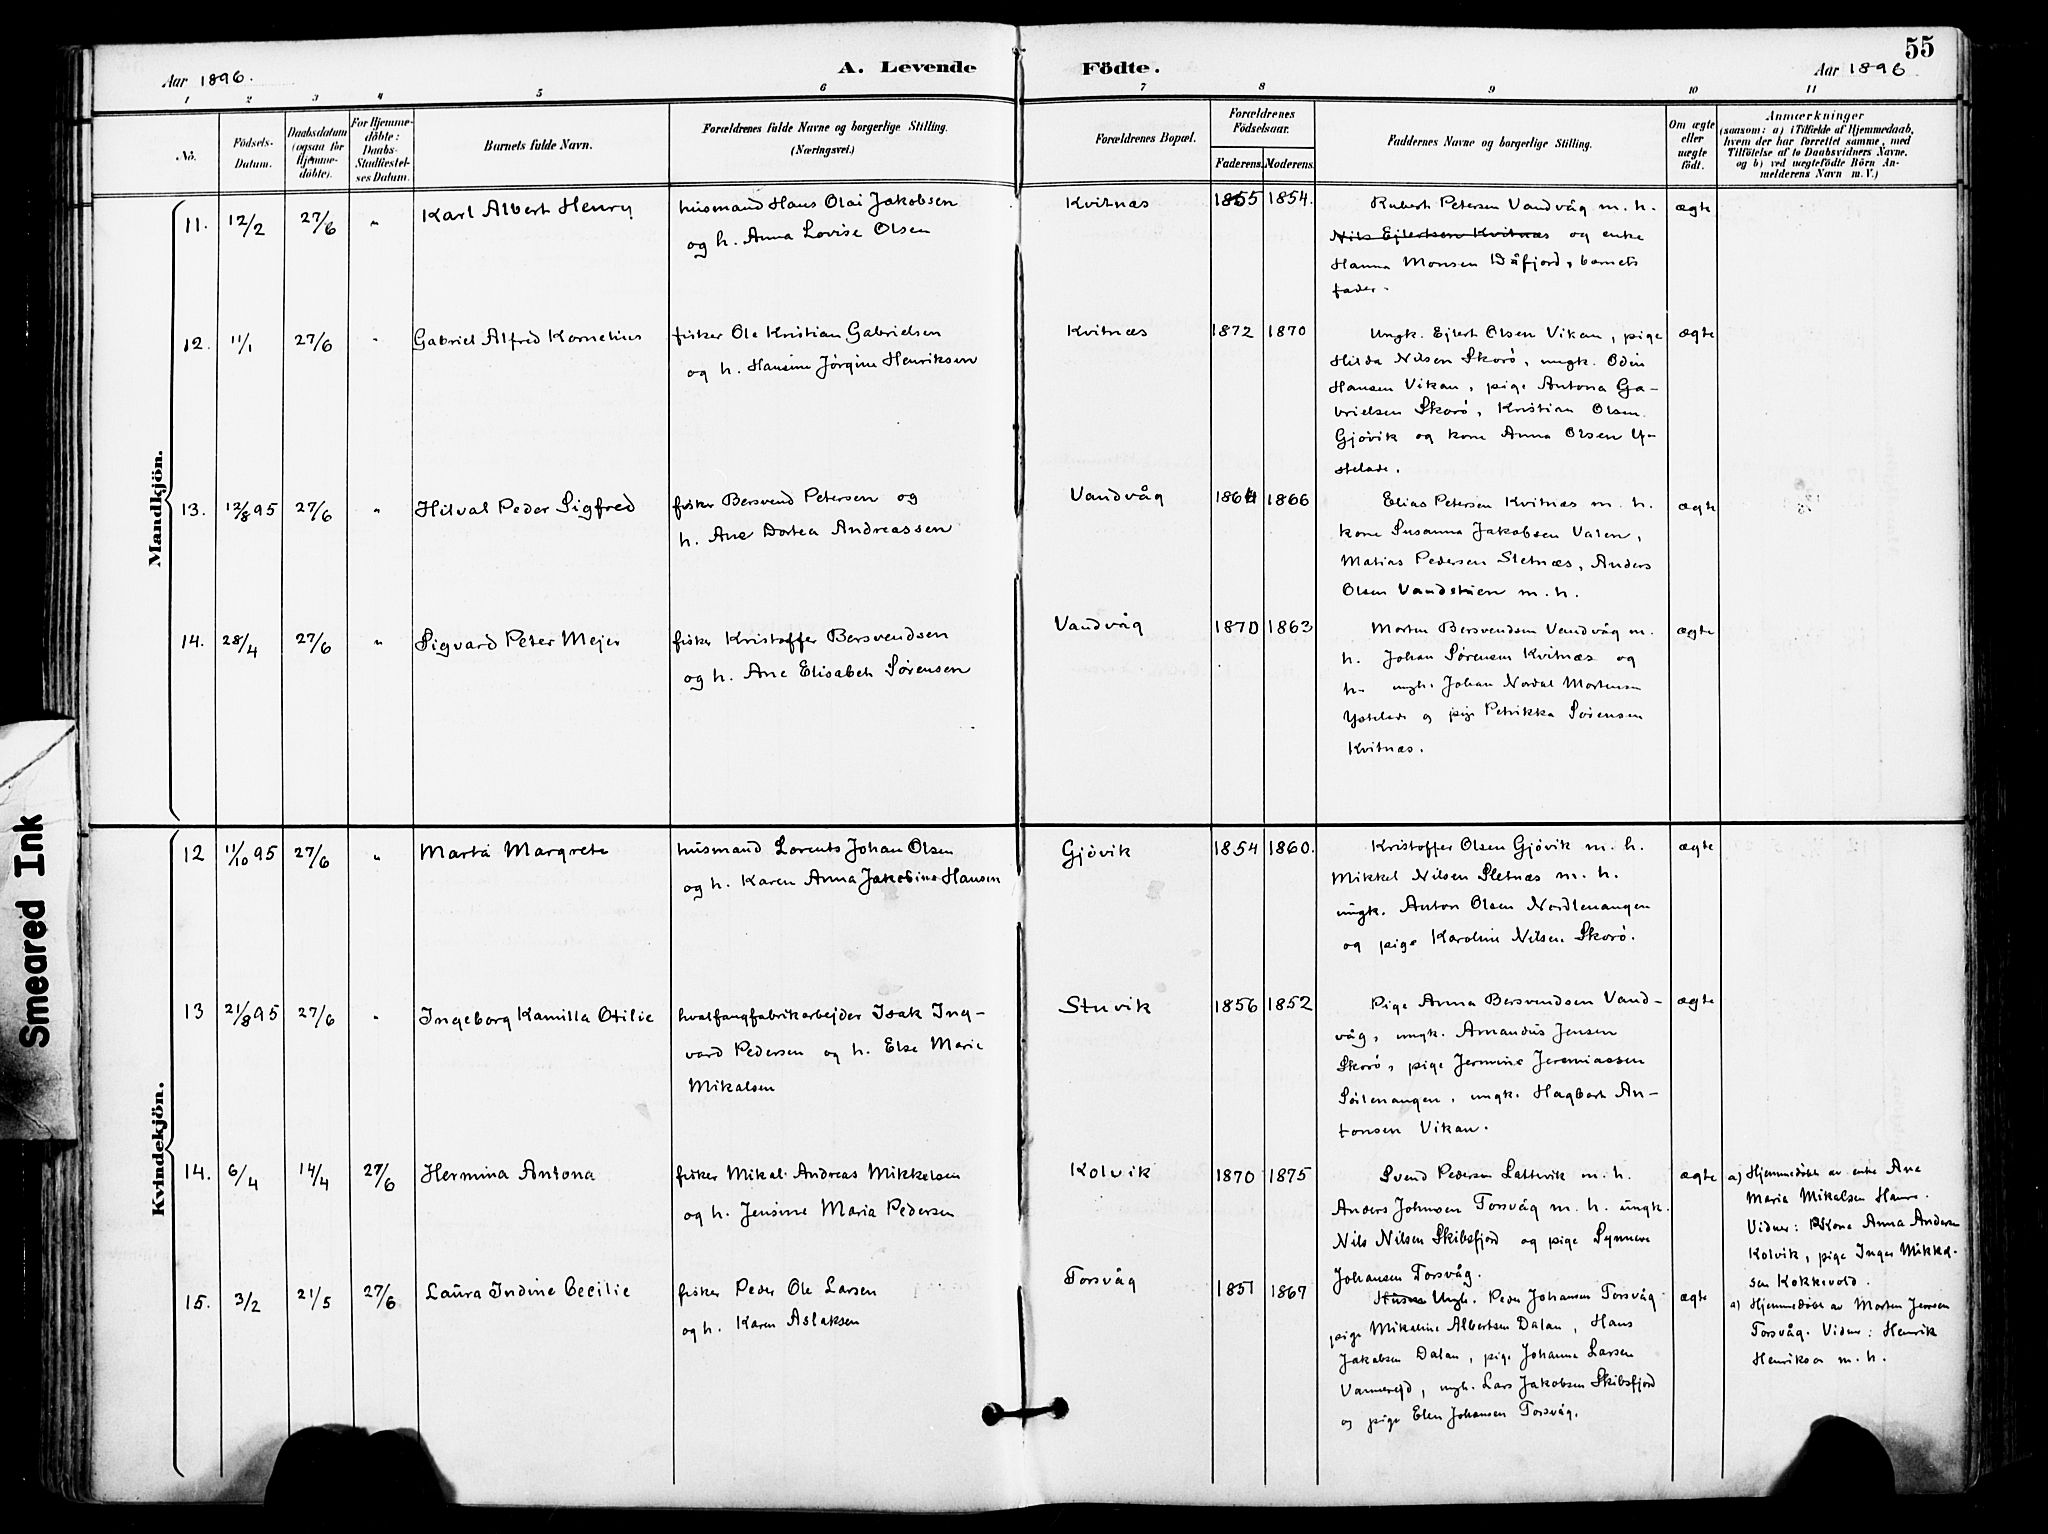 55
Aar 1896. A. Levende Födte. Aar 1896
1 2 3 4 5 6 7 8 9 10 11
No. Födsels-Datum. Daabsdatum (ogsaa for Hjemme-döbte). For Hjemme-döbte: Daabs-Stadfæstel-ses Datum. Barnets fulde Navn. Forældrenes fulde Navne og borgerlige Stilling. (Næringsvei.) Forældrenes Bopæl. Forældrenes Födselsaar. Faderens. Moderens. Faddernes Navne og borgerlige Stilling. Om ægte eller uægte födt. Anmærkninger (saasom: a) i Tilfælde af Hjemmedaab, hvem der har forrettet samme, med Tilföielse af to Daabsvidners Navne. og b) ved uægtefödte Börn An-melderens Navn m. V.)
Mandkjön.
11. 12/2 27/6 " Karl Albert Henry
husmand Hans Olai Jakobsen
og h. Anna Lovise Olsen
Kvitnæs 1855 1854.
Rubert Petersen Vandvåg m. h.
Nils Ejlertsen Kvitnæs og enke
Hanna Monsen Dåfjord, barnets
fader.
ægte
12. 11/1 27/6 " Gabriel Alfred Kornelius
fisker Ole Kristian Gabrielsen
og h. Hansine Jørgine Henriksen
Kvitnæs 1872 1870
Ungk. Ejlert Olsen Vikan, pige
Hilda Nilsen Skorö, ungk. Odin
Hansen Vikan, pige Antona Ga-
brielsen Skorö, Kristian Olsen
Gjövik og kone Anna Olsen Y-
stelade.
ægte
13. 12/8 95 27/6 " Hilval Peder Sigfred
fisker Bersvend Petersen og
h. Ane Dortea Andreassen
Vandvåg 1864 1866
Elias Petersen Kvitnæs m. h.
kone Susanna Jakobsen Valen,
Matias Pedersen Sletnæs, Anders
Olsen Vandstuen m. h.
ægte
14. 28/4 27/6 " Sigvard Peter Mejer
fisker Kristoffer Bersvendsen
og h. Ane Elisabeh Sørensen
Vandvåg 1870 1863
Morten Bersvendsen Vandvåg m.
h. Johan Sørensen Kvitnæs og
h. ungk. Johan Nordal Mortensen
Ystelade og pige Petrikka Sørensen
Kvitnæs.
ægte
Kvindekjön.
12 11/10 95 27/6 " Marta Margrete
husmand Lorents Johan Olsen
og h. Karen Anna Jakobine Hansen
Gjövik 1854 1860.
Kristoffer Olsen Gjövik m. h.
Mikkel Nilsen Sletnæs m. h.
ungk. Anton Olsen Nordlenangen
og pige Karoline Nilsen Skorö.
ægte
13 21/8 95 27/6 " Ingeborg Kamilla Otilie
hvalfangfabrikarbejder Isak Ing-
vard Pedersen og h. Else Marie
Mikalsen
Stuvik 1856 1852
Pige Anna Bersvendsen Vand-
våg, ungk. Amandus Jensen
Skorö, pige Jermine Jeremiassen
Sörlenangen, ungk. Hagbart An-
tonsen Vikan.
ægte
14. 6/4 14/4 27/6 Hermina Antona
fisker Mikal Andreas Mikkelsen
og h. Jensine Maria Pedersen
Kolvik 1870 1875
Svend Pedersen Lattervik m. h.
Anders Johnsen Torsvåg m. h. ungk.
Nils Nilsen Skibsfjord og pige Synneve
Johansen Torsvåg.
ægte
a) Hjemmedöbt av enke Ane
Maria Mikalsen
Vidner: Kone Anna Andersen
Kolvik, pige Inger Mikkel-
sen Kokkevold.
15. 3/2 21/5 27/6 Laura Indine Cecilie
fisker Peder Ole Larsen
og h. Karen Aslaksen
Torsvåg 1851 1867
Ungk. Peder Johansen Torsvåg
pige Mikaline Albertsen Dalan, Hans
Jakobsen Dalan, pige Johanna Larsen
Vannerejd, ungk. Lars Jakobsen Skibsfjord
og pige Elen Johansen Torsvåg.
ægte
a) Hjemmedöbt av Morten Jensen
Torsvåg. Vidner: Henrik
Henriksen m. h.
Smeared Ink